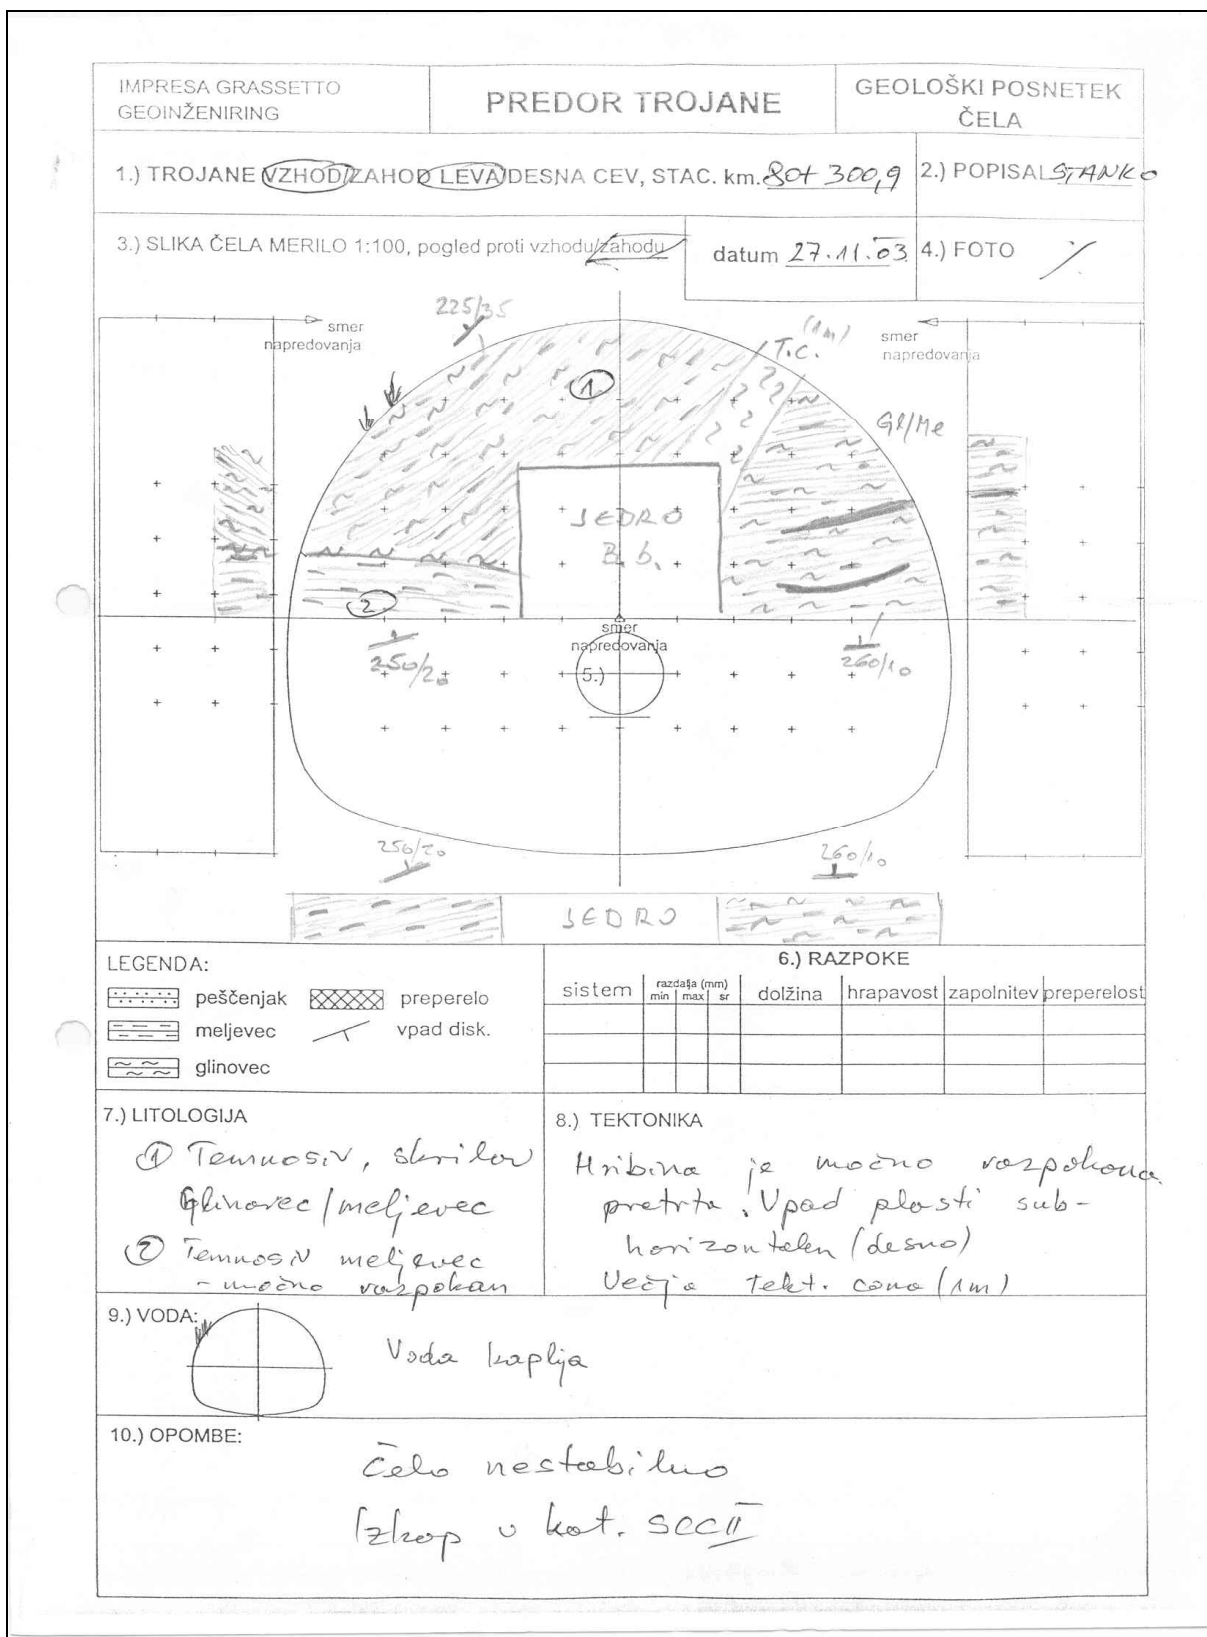 IMPRESA GRASSETTO
GEOINŽENIRING
PREDOR TROJANE
GEOLOŠKI POSNETEK
ČELA
1.) TROJANE VZHOD/ZAHOD LEVA/DESNA CEV, STAC. km. 80+300,9
2.) POPISAL STANKO
3.) SLIKA ČELA MERILO 1:100, pogled proti vzhodu/zahodu
datum 27.11.03
4.) FOTO /
225/35
smer
napredovanja
(1m)
T.C.
smer
napredovanja
1
Gl/Me
JEDRO
B.b.
2
smer
napredovanja
250/20
5.)
260/10
250/20
260/10
JEDRO
LEGENDA:
peščenjak
preperelo
meljevec
vpad disk.
glinovec
6.) RAZPOKE
sistem
razdalja (mm)
min max sr
dolžina
hrapavost
zapolnitev
preperelost
7.) LITOLOGIJA
① Temnosiv, skrilav
glinovec/meljevec
② Temnosiv meljevec
- močno razpokan
8.) TEKTONIKA
Hribina je močno razpokana
pretrta. Vpad plasti sub-
horizontalen (desno)
Večja tekt. cona (1m)
9.) VODA:
Voda kaplja
10.) OPOMBE:
Čelo nestabilno
Izkop v kat. SCCII